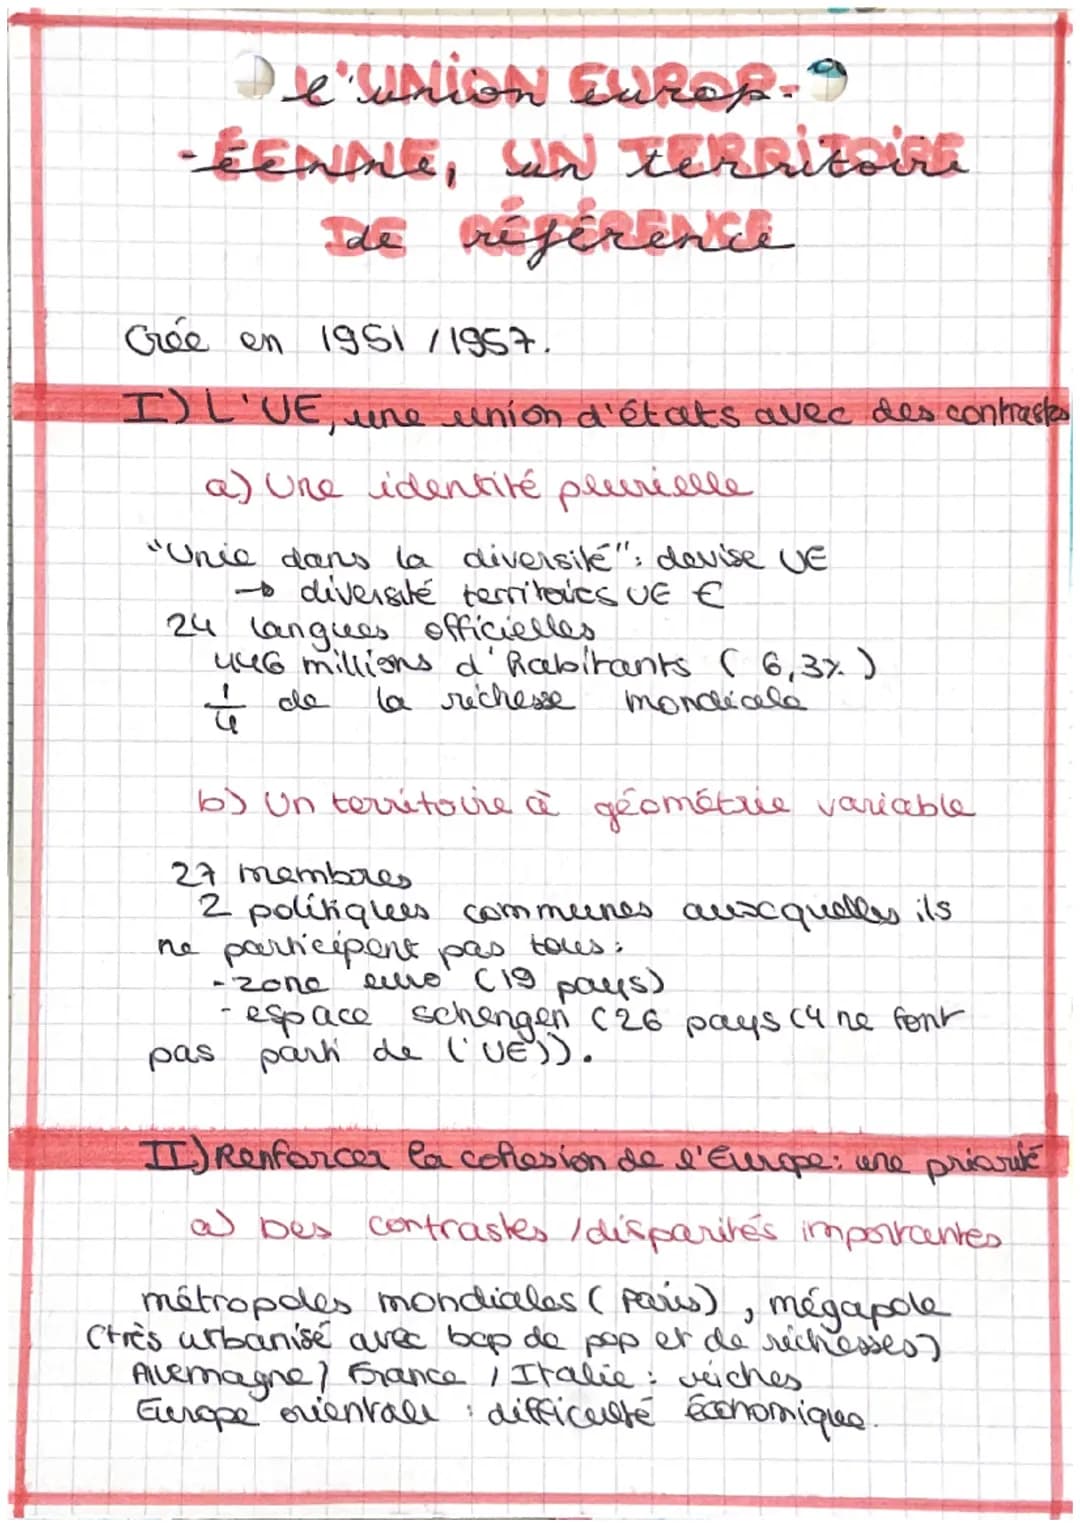 l'union europ-
-éenne, un territoire
de référence
Crée en 1951 / 1957.
I) L'UE, une union d'états avec des contrastes
a) Une identité plurielle
"Unie dans la diversité": devise UE
→ diversité territoires UE €
24 langues officielles
446 millions d'habitants ( 6,3% )
1/4 de la richesse mondiale
b) Un territoire à géométrie variable
27 membres
2 politiques communes auxquelles ils
ne participent pas tous :
- zone euro (19 pays)
- espace schengen (26 pays (4 ne font
pas parti de l'UE)).
II) Renforcer la cohesion de l'Europe : une priorité
a) Des contrastes / disparités importantes
métropoles mondiales ( Paris) , mégapole
(très urbanisé avec bcp de pop et de richesses)
Allemagne / France / Italie : riches
Europe orientale : difficulté économique.